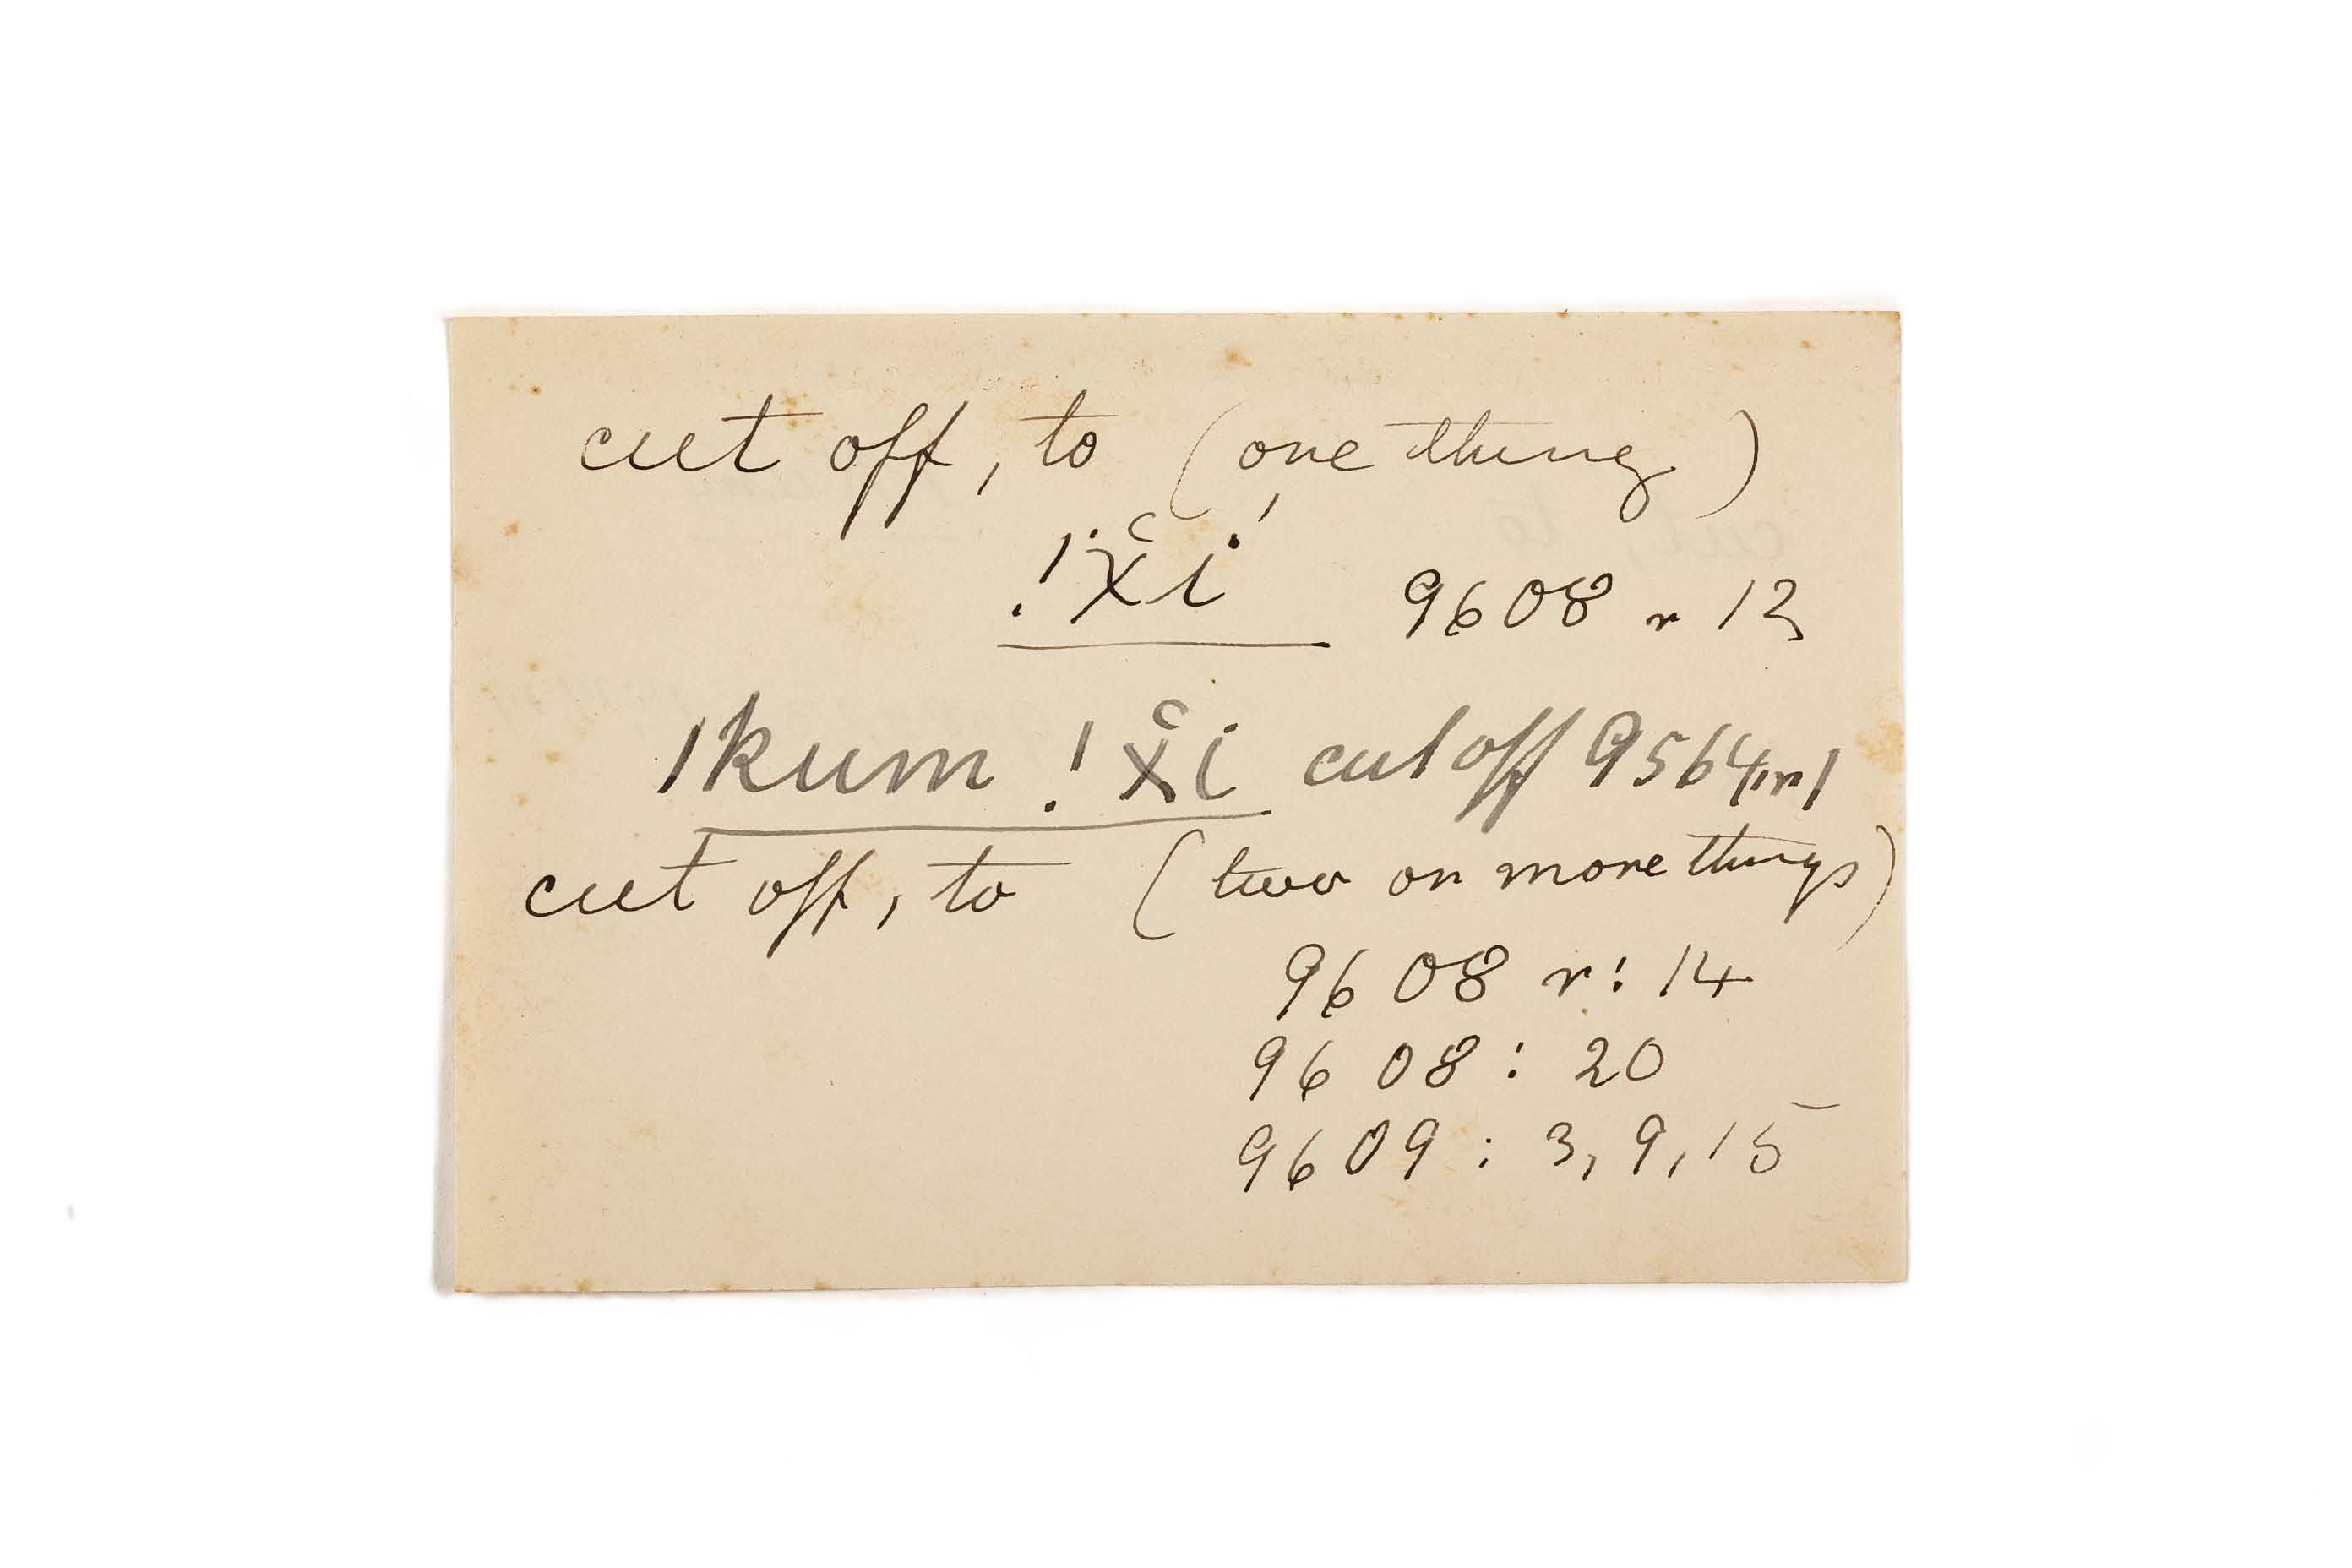 cut off, to (one thing)
!χ̆í 9608 r 12
ǀkum !χ̆i cut off 9564,r1
cut off, to (two or more things)
9608 r: 14
9608 : 20
9609 : 3, 9, 15